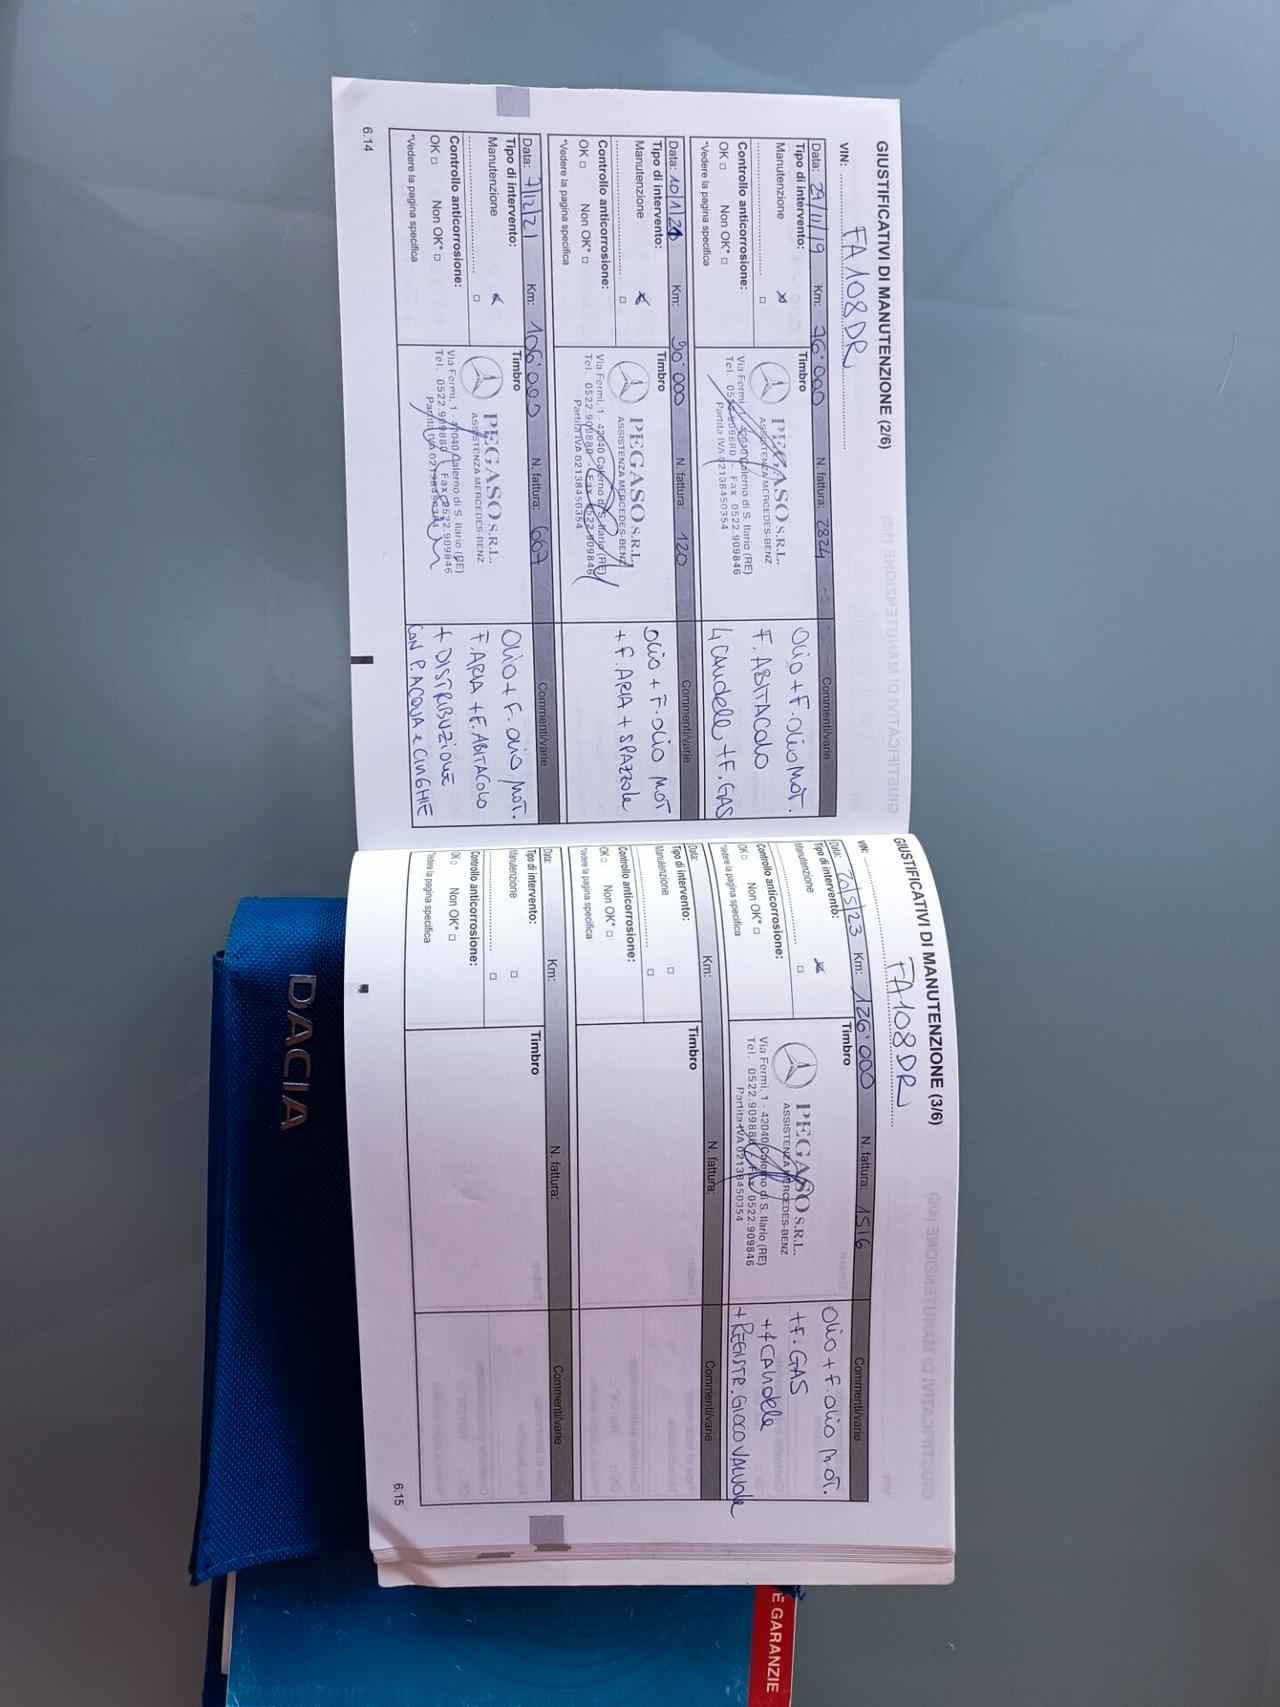 GIUSTIFICATIVI DI MANUTENZIONE (2/6)
VIN: FA108DR
Data: 29/11/19 Km: 76'000 N. fattura: 2824 Commenti/varie
Tipo di intervento:
Manutenzione
Controllo anticorrosione:
OK □ Non OK* □
*Vedere la pagina specifica
Timbro
PEGASO S.R.L.
ASSISTENZA MERCEDES-BENZ
Via Fermi, 1 - 42040 Calerno di S. Ilario (RE)
Tel. 0522.909880 - Fax 0522.909846
Partita IVA 02138450354
Olio + F. olio MOT.
F. ABITACOLO
4 CANDELE + F. GAS
Data: 10/1/21 Km: 90'000 N. fattura: 120 Commenti/varie
Tipo di intervento:
Manutenzione
Controllo anticorrosione:
OK □ Non OK* □
*Vedere la pagina specifica
Timbro
PEGASO S.R.L.
ASSISTENZA MERCEDES-BENZ
Via Fermi, 1 - 42040 Calerno di S. Ilario (RE)
Tel. 0522.909880 - Fax 0522.909846
Partita IVA 02138450354
Olio + F. olio MOT
+ F. ARIA + SPAZZOLE
Data: 7/12/21 Km: 106'000 N. fattura: 667 Commenti/varie
Tipo di intervento:
Manutenzione
Controllo anticorrosione:
OK □ Non OK* □
*Vedere la pagina specifica
Timbro
PEGASO S.R.L.
ASSISTENZA MERCEDES-BENZ
Via Fermi, 1 - 42040 Calerno di S. Ilario (RE)
Tel. 0522.909880 - Fax 0522.909846
Partita IVA 02138450354
Olio + F. olio MOT.
F. ARIA + F. ABITACOLO
+ DISTRIBUZIONE
CON P. ACQUA e CINGHIE
6.14
GIUSTIFICATIVI DI MANUTENZIONE (3/6)
VIN: FA108DR
Data: 20/5/23 Km: 126'000 N. fattura: 1516 Commenti/varie
Tipo di intervento:
Manutenzione
Controllo anticorrosione:
OK □ Non OK* □
*Vedere la pagina specifica
Timbro
PEGASO S.R.L.
ASSISTENZA MERCEDES-BENZ
Via Fermi, 1 - 42040 Calerno di S. Ilario (RE)
Tel. 0522.909880 - Fax 0522.909846
Partita IVA 02138450354
Olio + F. olio MOT.
+ F. GAS
+ 4 CANDELE
+ REGISTR. GIOCO VALVOLE
Data: Km: N. fattura: Commenti/varie
Tipo di intervento:
Manutenzione □
Controllo anticorrosione:
OK □ Non OK* □
*Vedere la pagina specifica
Timbro
Data: Km: N. fattura: Commenti/varie
Tipo di intervento:
Manutenzione □
Controllo anticorrosione:
OK □ Non OK* □
*Vedere la pagina specifica
Timbro
6.15
DACIA
E GARANZIE